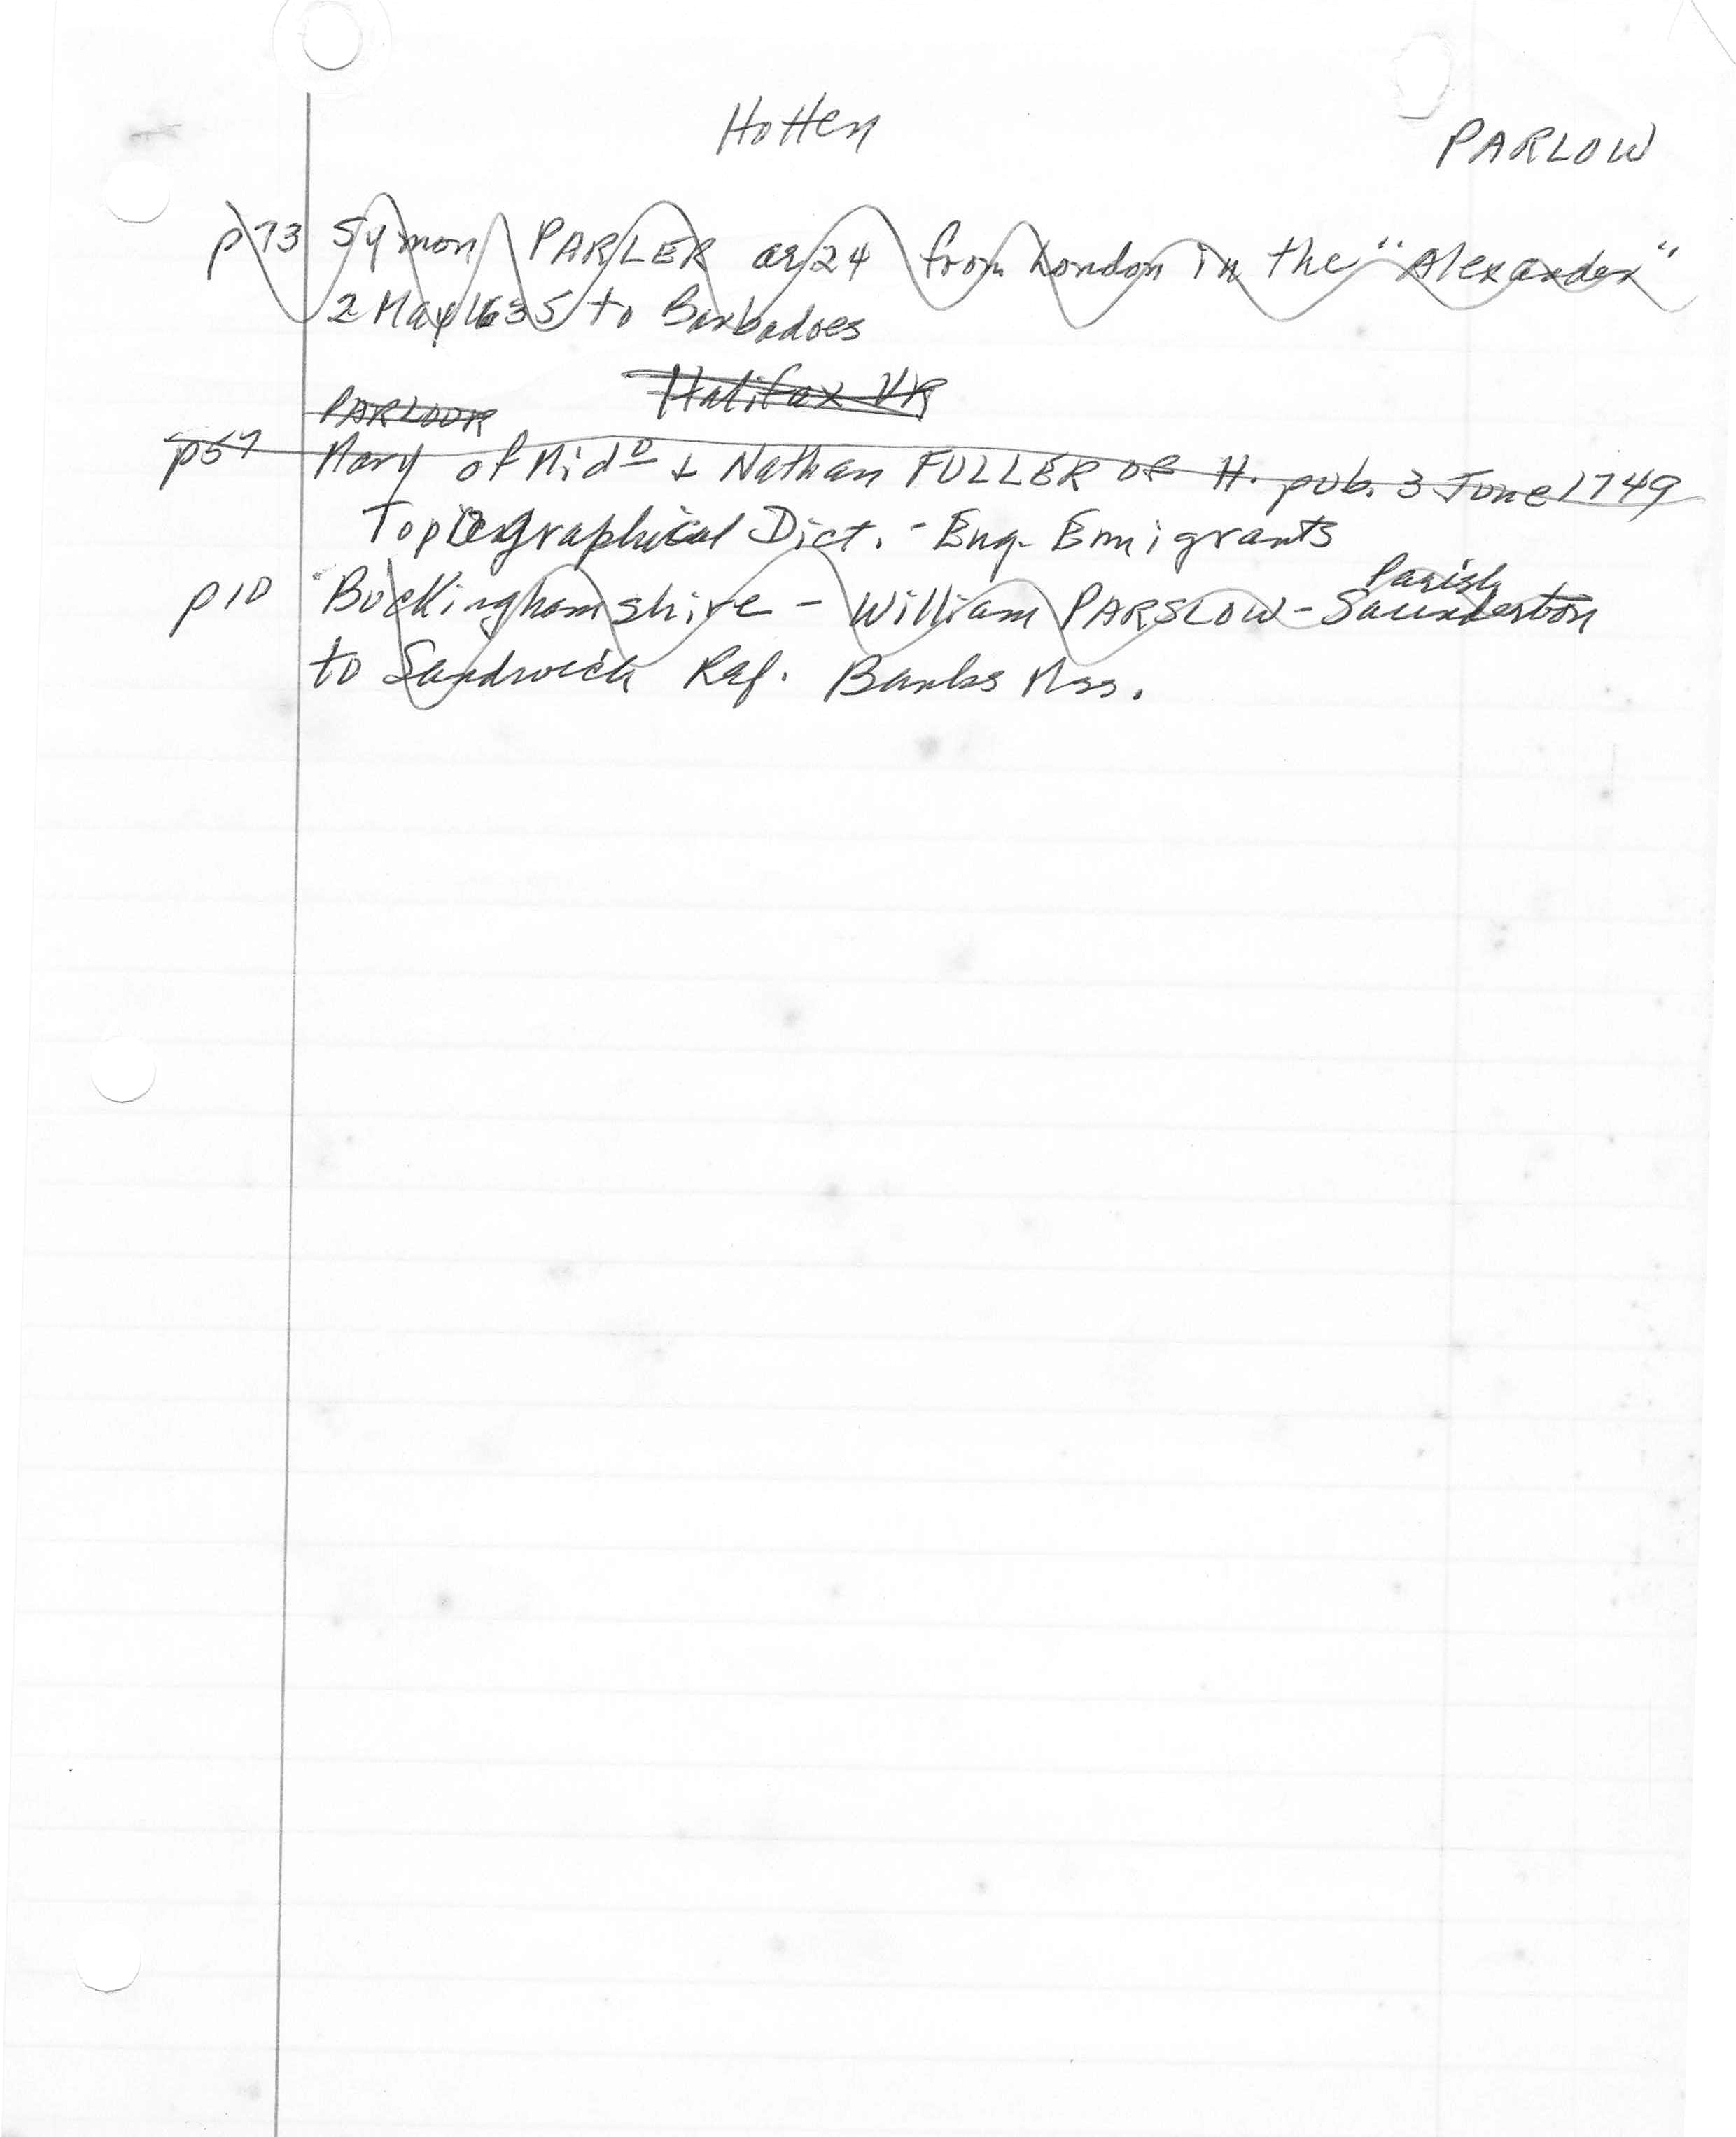 Hotten
PARLOW
p73 Symon PARLER ae 24 from London in the "Alexander"
2 May 1635 to Barbadoes
Halifax VR
PARLOUR
p57 Mary of Mid D & Nathan FULLER of H. pub. 3 June 1749
Topographical Dict. - Eng. Emigrants
Parish
p10 Buckinghamshire - William PARSLOW - Saunderton
to Sandwich Ref. Banks Mss.